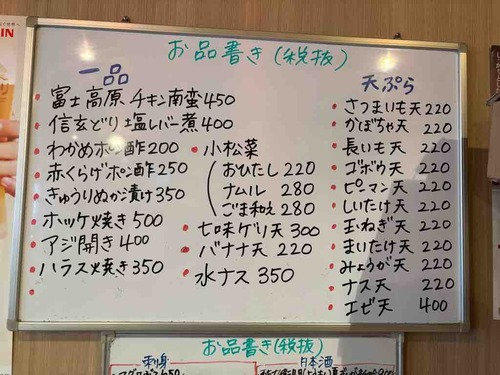 お品書き(税抜)
一品
富士高原チキン南蛮450
信玄どり塩レバー煮400
わかめポン酢200
赤くらげポン酢250
きゅうりぬか漬け350
ホッケ焼き500
アジ開き400
ハラス焼き350
小松菜
おひたし220
ナムル280
ごま和え280
七味ゲソ天300
バナナ天220
水ナス350
天ぷら
さつまいも天220
かぼちゃ天220
長いも天220
ゴボウ天220
ピーマン天220
しいたけ天220
玉ねぎ天220
まいたけ天220
みょうが天220
ナス天220
エビ天400
お品書き(税抜)
刺身
日本酒